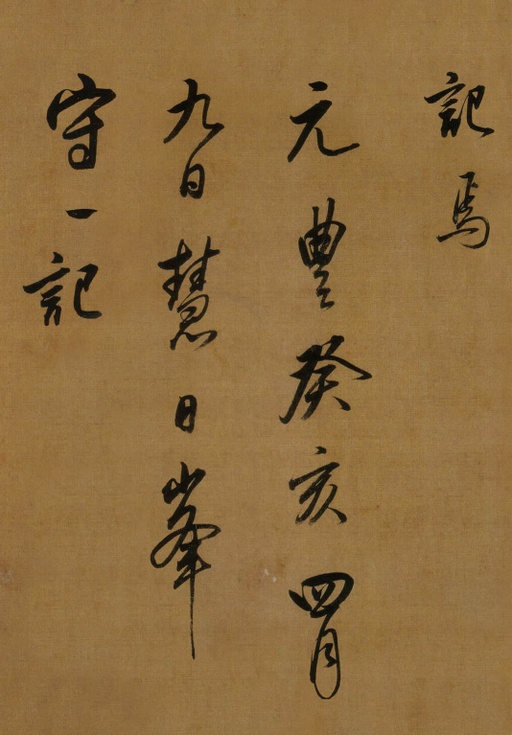 記焉
元豐癸亥四月
九日慧日峯
守一記